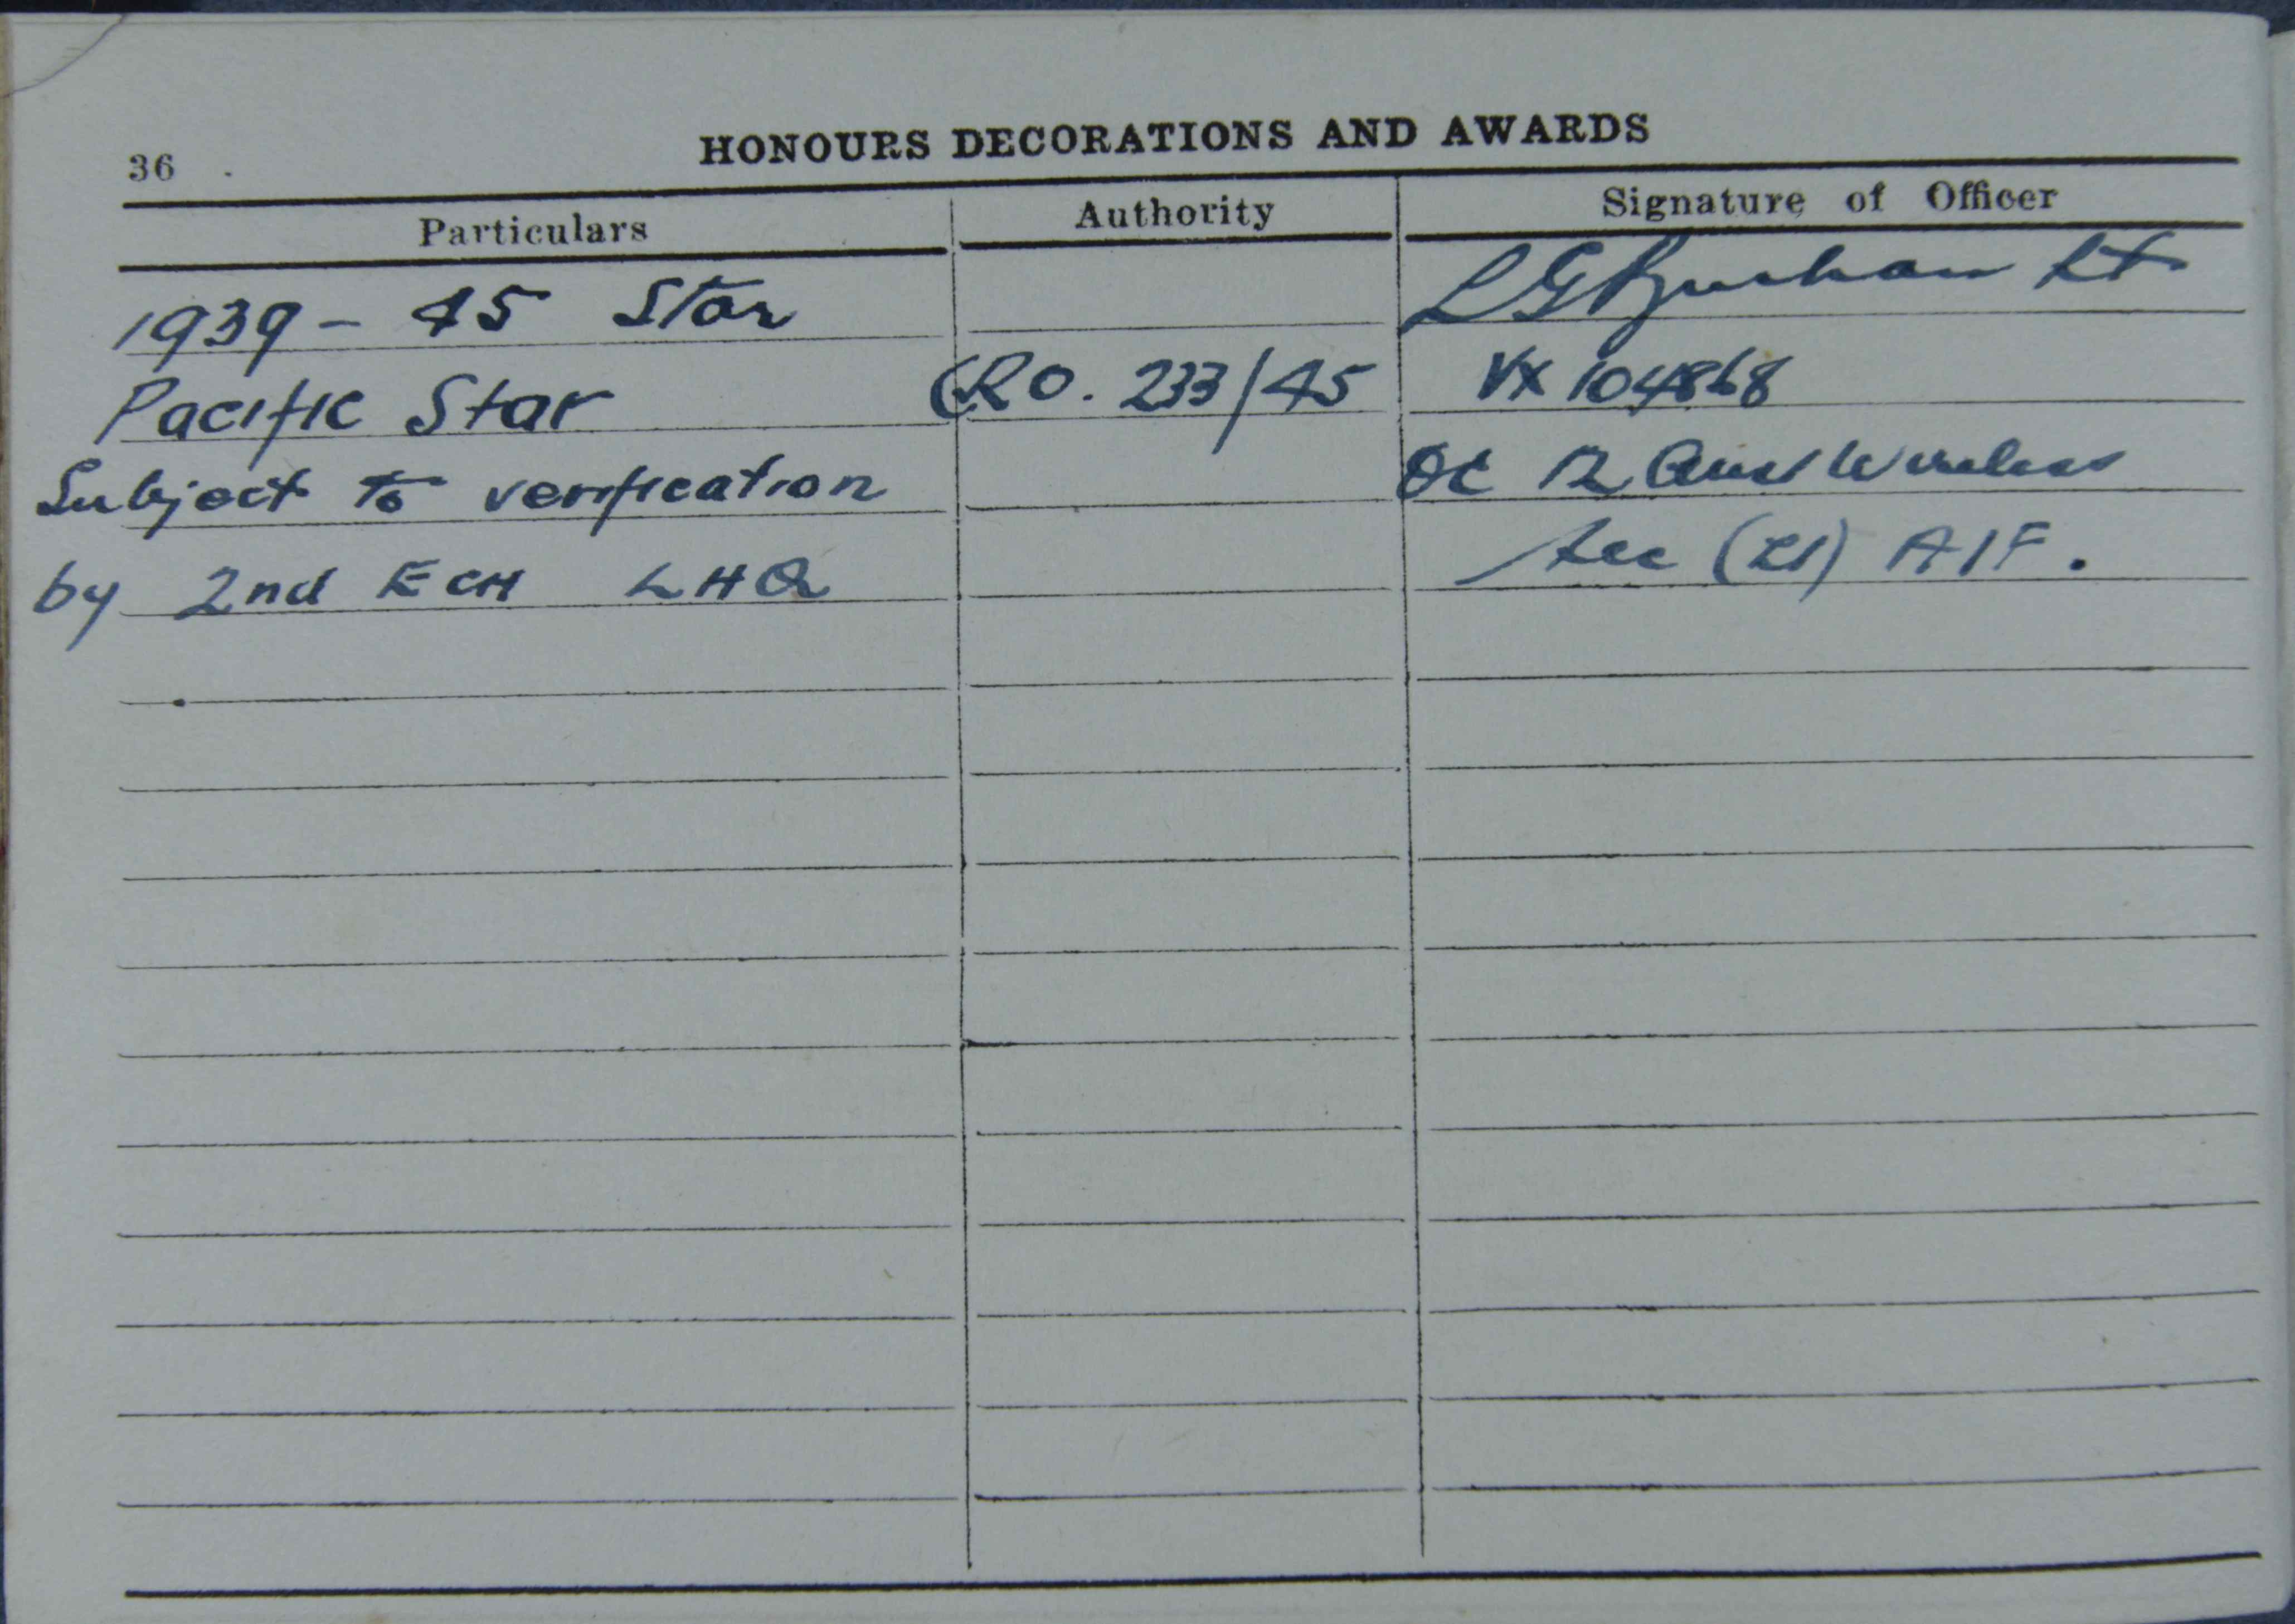 36
HONOURS DECORATIONS AND AWARDS
Particulars Authority Signature of Officer
1939 - 45 Star LG Lt
Pacific Star GRO. 233/45 VX 104868
Subject to verification OC 12 Aust Wireless
by 2nd ECH LHQ Sec (LS) AIF.